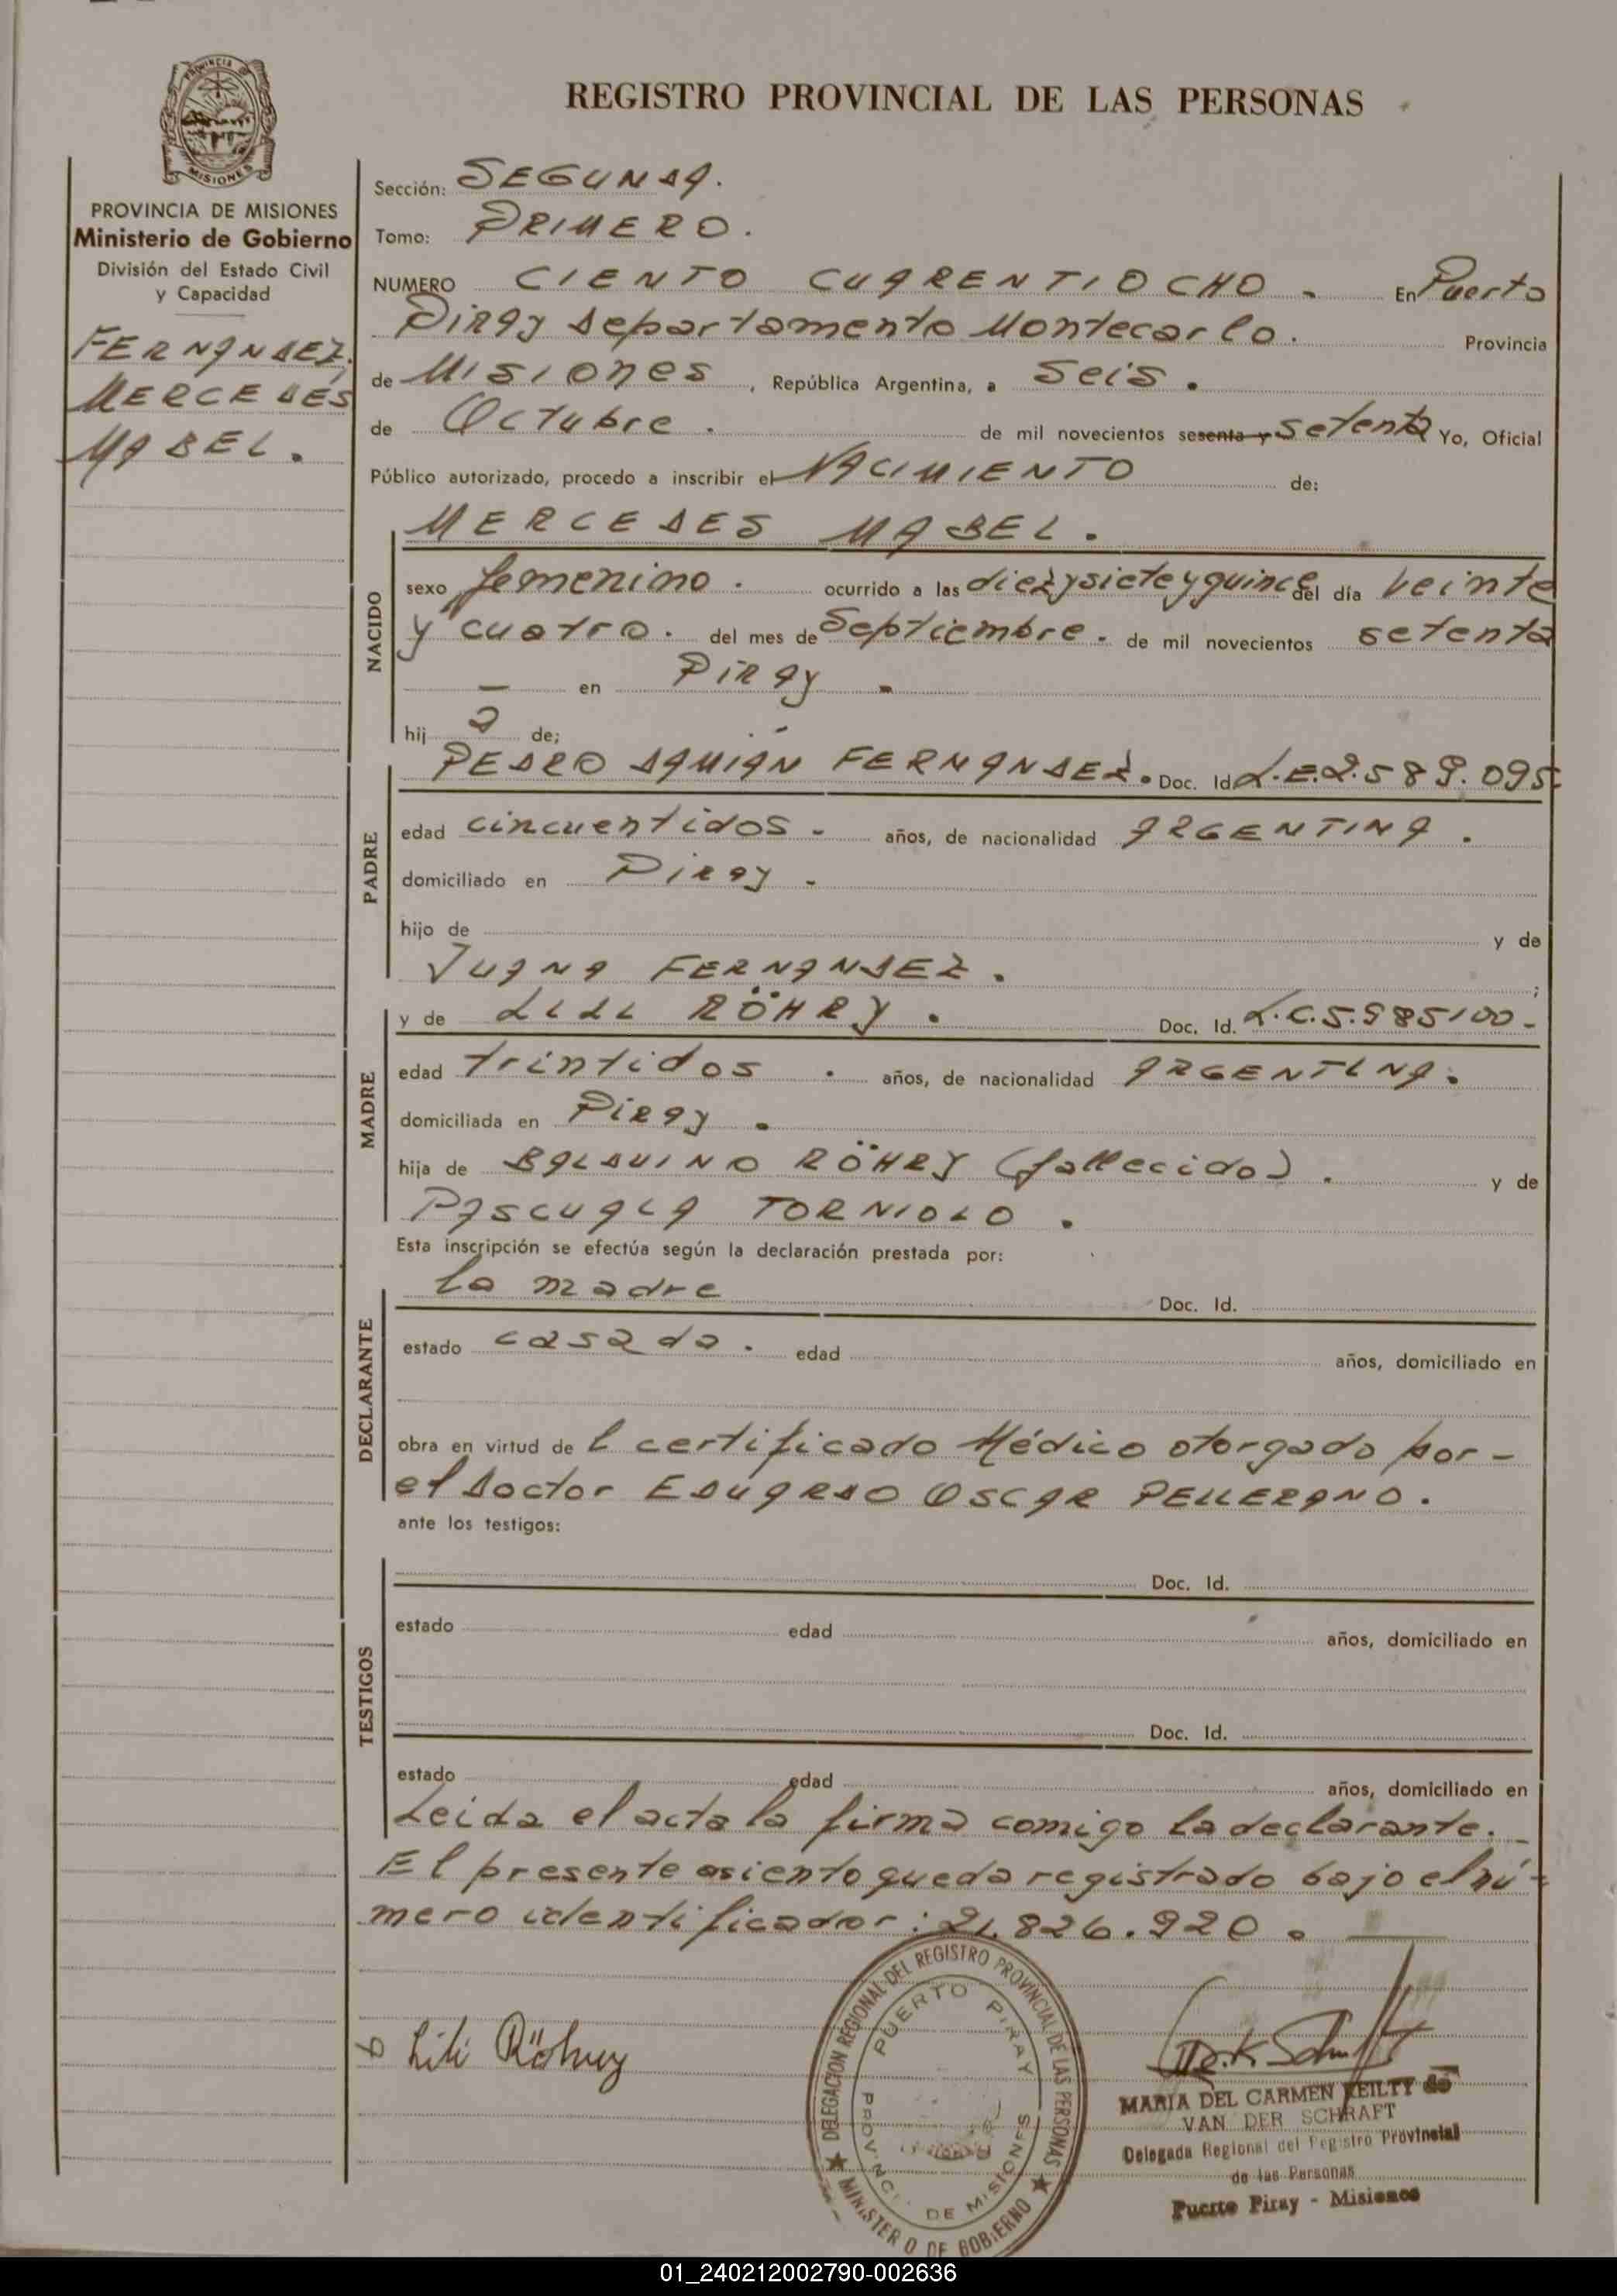 REGISTRO PROVINCIAL DE LAS PERSONAS
PROVINCIA DE MISIONES
Ministerio de Gobierno
División del Estado Civil
y Capacidad
FERNANDEZ,
MERCEDES
MABEL.
Sección: SEGUNDA.
Tomo: PRIMERO.
NUMERO CIENTO CUARENTIOCHO. En Puerto
Piray departamento Montecarlo. Provincia
de Misiones, República Argentina, a Seis.
de Octubre. de mil novecientos sesenta y setenta Yo, Oficial
Público autorizado, procedo a inscribir el NACIMIENTO de:
MERCEDES MABEL.
NACIDO
sexo femenino. ocurrido a las diezysieteyquince del día veinte
y cuatro. del mes de Septiembre. de mil novecientos setenta
— en PIRAY.
hij a de;
PEDRO DAMIÁN FERNANDEZ. Doc. Id. L.E.2.589.095
PADRE
edad cincuentidos. años, de nacionalidad ARGENTINA.
domiciliado en Piray.
hijo de y de
JUANA FERNANDEZ. ;
MADRE
y de LILI RÖHRY. Doc. Id. L.C.5.985100-
edad trintidos. años, de nacionalidad ARGENTINA.
domiciliada en Piray.
hija de BALDUINO RÖHRY (fallecido). y de
PASCUALA TORNIOLO.
Esta inscripción se efectúa según la declaración prestada por:
DECLARANTE
la madre Doc. Id.
estado casada. edad años, domiciliado en
obra en virtud de l certificado Médico otorgado por-
el doctor EDUARDO OSCAR PELLERANO.
ante los testigos:
TESTIGOS
Doc. Id.
estado edad años, domiciliado en
Doc. Id.
estado edad años, domiciliado en
Leida el acta la firma comigo la declarante.
El presente asiento queda registrado bajo el nú-
mero identificador: 21.826.920.
Lili Röhry
DELEGACION REGIONAL DEL REGISTRO PROVINCIAL DE LAS PERSONAS
PUERTO PIRAY
PROVINCIA DE MISIONES
MINISTERIO DE GOBIERNO
MARIA DEL CARMEN KEILTY de
VAN DER SCHRAFT
Delegada Regional del Registro Provincial
de las Personas
Puerto Piray - Misiones
01_240212002790-002636